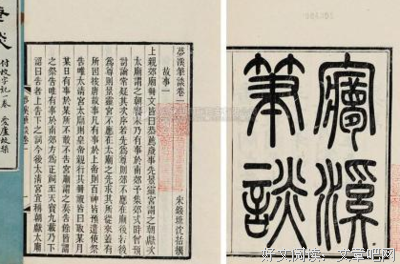 夢溪
筆談
夢溪筆談卷一
故事一
宋錢塘沈括撰
上親郊廟冊文皆曰恭薦歲事先景靈宮謂之朝獻次
太廟謂之朝饗末乃有事於南郊予集郊式時曾預
討論常疑其次序若先為尊則郊不應在廟後若後
為尊則景靈宮不應在太廟之先求其所從來蓋有
所因按唐故事凡有事於上帝則百神皆預遣使祭
告唯太清宮太廟則皇帝親行其冊祝皆曰取某月
某日有事於某所不敢不告宮廟謂之奏告餘皆謂
之祭告唯有事於南郊方為正祠至天寶九載乃下
詔曰告者上告下之詞今後太清宮宜稱朝獻太廟
談
付校字記一卷
愛廬
好文阅读：文章吧网